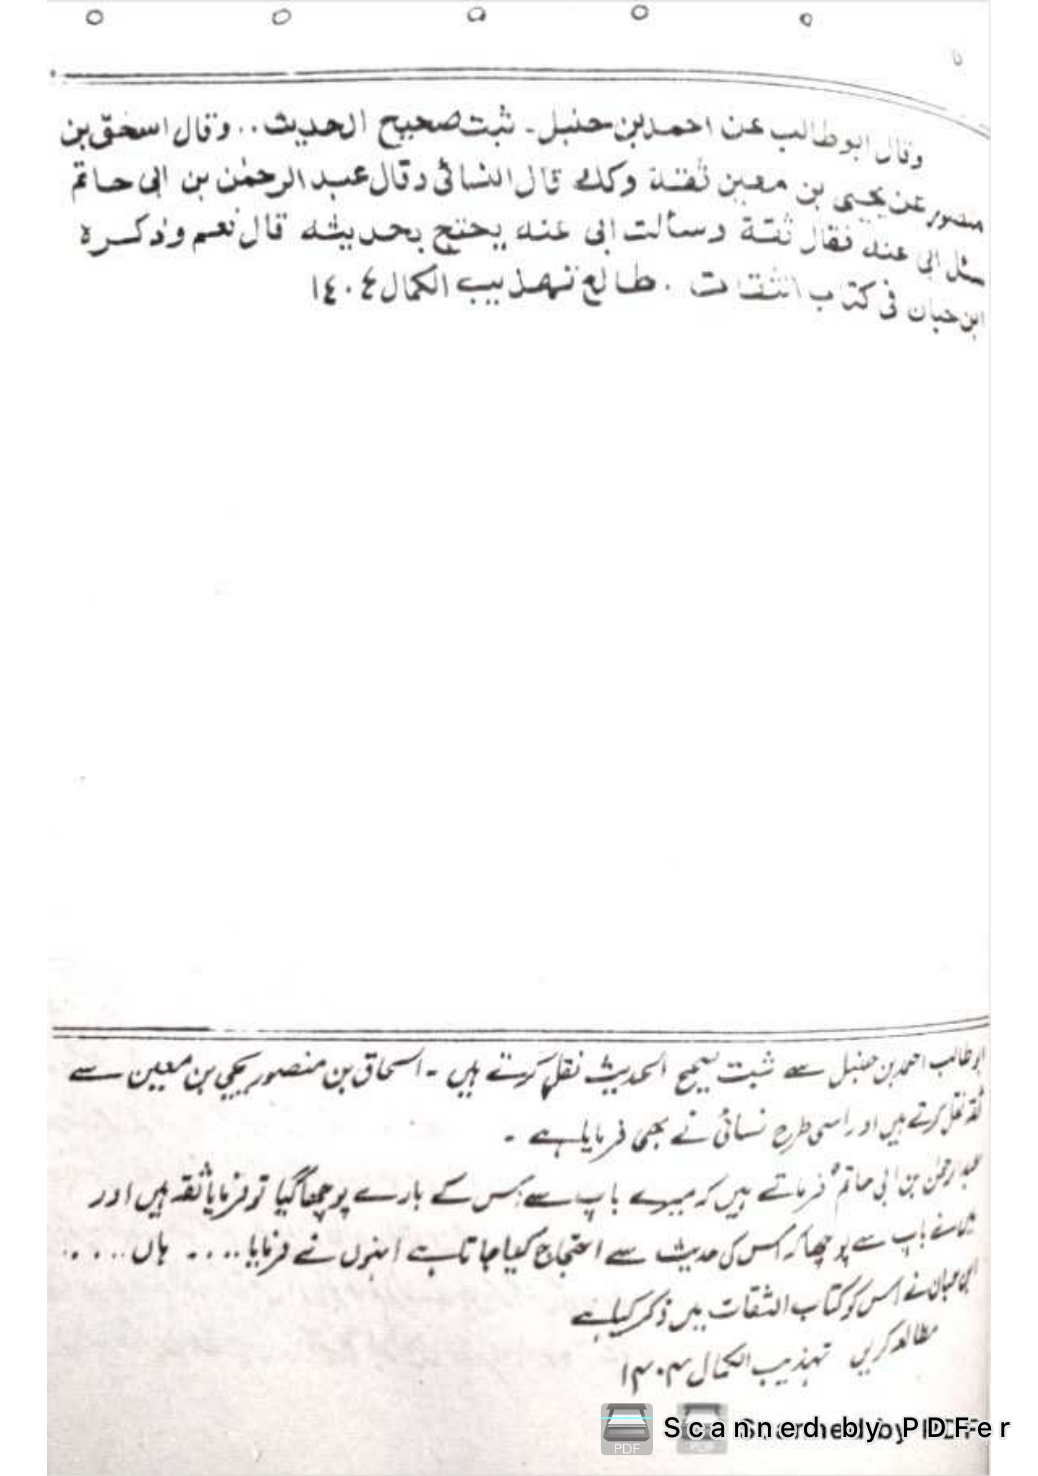 وقال ابوطالب عن احمد بن حنبل۔ ثبت صحيح الحديث .. وقال اسحٰق بن
منصور عن يحيىٰ بن معين ثقة وكذا قال النسائى وقال عبد الرحمٰن بن ابى حاتم
سئل ابى عنه فقال ثقة وسألت ابى عنه يحتج بحديثه قال نعم وذكره
ابن حبان فى كتاب الثقات . طالع تهذيب الكمال ١٤٠٤
ابوطالب احمد بن حنبل سے ثبت صحیح الحدیث نقل کرتے ہیں ۔ اسحاق بن منصور یحیٰی بن معین سے
ثقہ نقل کرتے ہیں اور اسی طرح نسائی نے بھی فرمایا ہے ۔
عبد الرحمٰن بن ابی حاتم فرماتے ہیں کہ میرے باپ سے اس کے بارے پوچھا گیا تو فرمایا ثقہ ہیں اور
میں نے باپ سے پوچھا کہ اس کی حدیث سے احتجاج کیا جاتا ہے انہوں نے فرمایا .... ہاں ....
ابن حبان نے اس کو کتاب الثقات میں ذکر کیا ہے
مطالعہ کریں تہذیب الکمال ۱۴۰۴
Scanned by PDFer